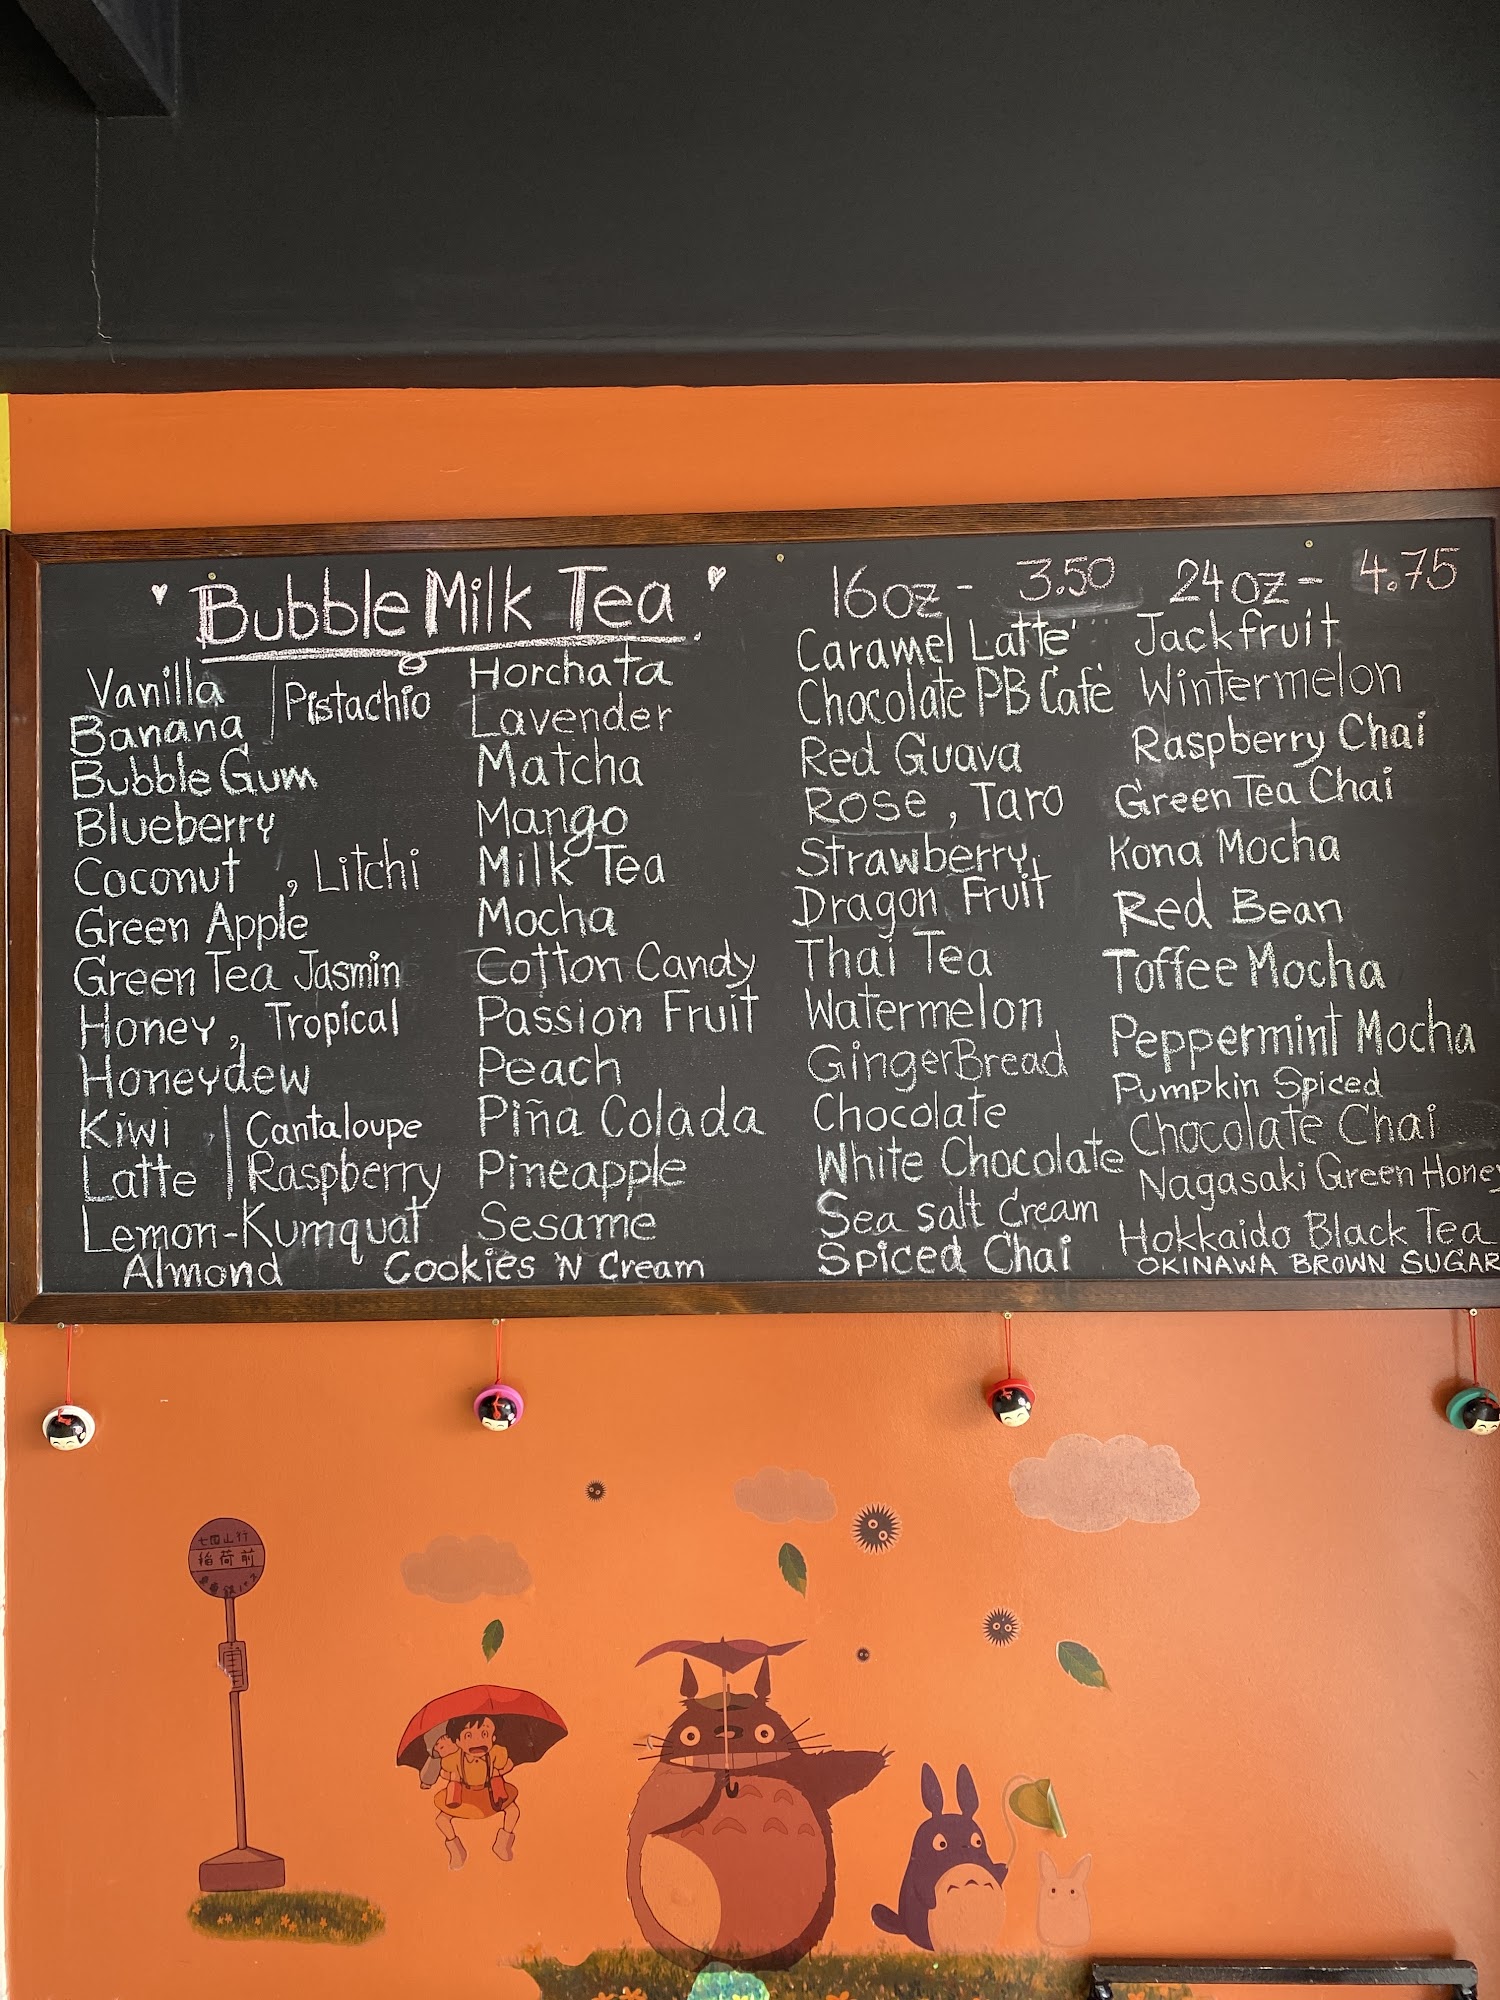 Bubble Milk Tea
16oz - 3.50 24oz - 4.75
Vanilla
Pistachio
Banana
Bubble Gum
Blueberry
Coconut , Litchi
Green Apple
Green Tea Jasmin
Honey, Tropical
Honeydew
Kiwi | Cantaloupe
Latte | Raspberry
Lemon-Kumquat
Almond
Horchata
Lavender
Matcha
Mango
Milk Tea
Mocha
Cotton Candy
Passion Fruit
Peach
Piña Colada
Pineapple
Sesame
Cookies 'N Cream
Caramel Latte
Chocolate PB Café
Red Guava
Rose, Taro
Strawberry
Dragon Fruit
Thai Tea
Watermelon
GingerBread
Chocolate
White Chocolate
Sea salt Cream
Spiced Chai
Jackfruit
Wintermelon
Raspberry Chai
Green Tea Chai
Kona Mocha
Red Bean
Toffee Mocha
Peppermint Mocha
Pumpkin Spiced
Chocolate Chai
Nagasaki Green Honey
Hokkaido Black Tea
OKINAWA BROWN SUGAR
稲荷前